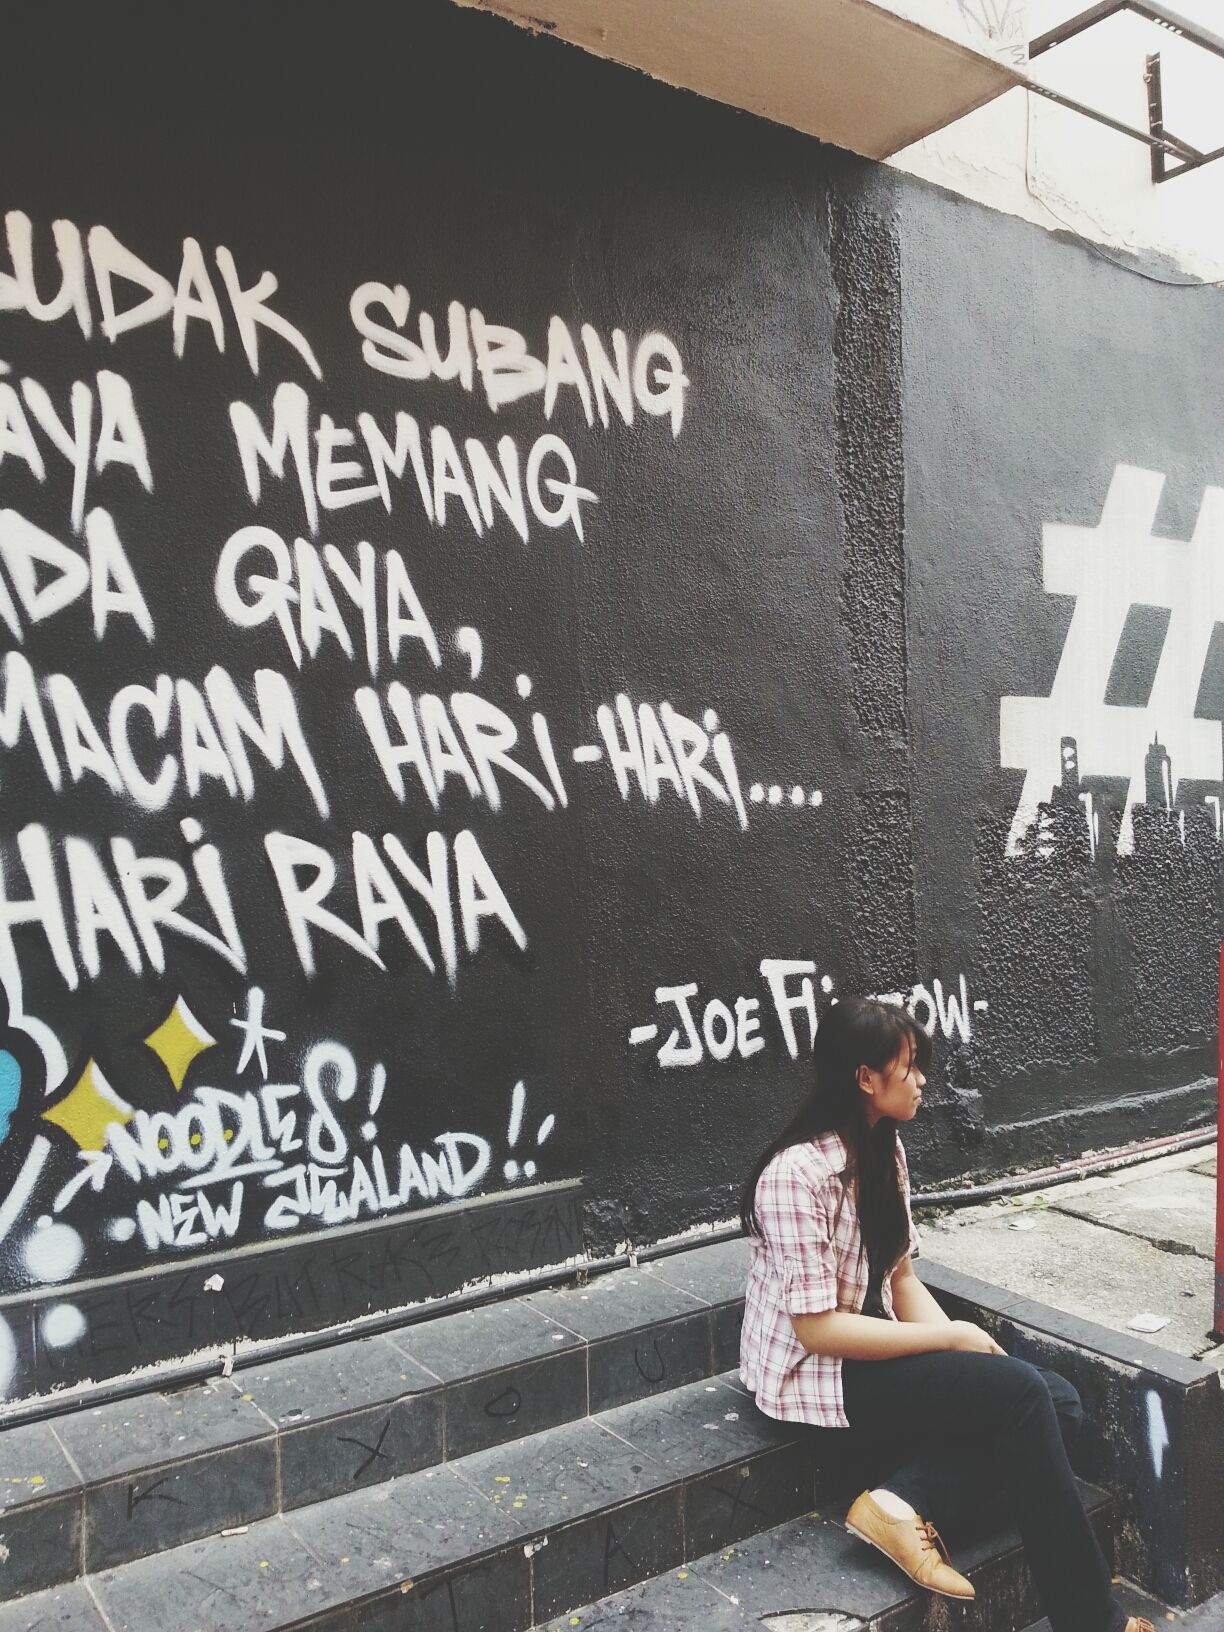 BUDAK SUBANG
JAYA MEMANG
ADA GAYA,
MACAM HARI-HARI....
HARI RAYA
-JOE FLIZZOW-
#
NOODLES!
NEW ZEALAND!!